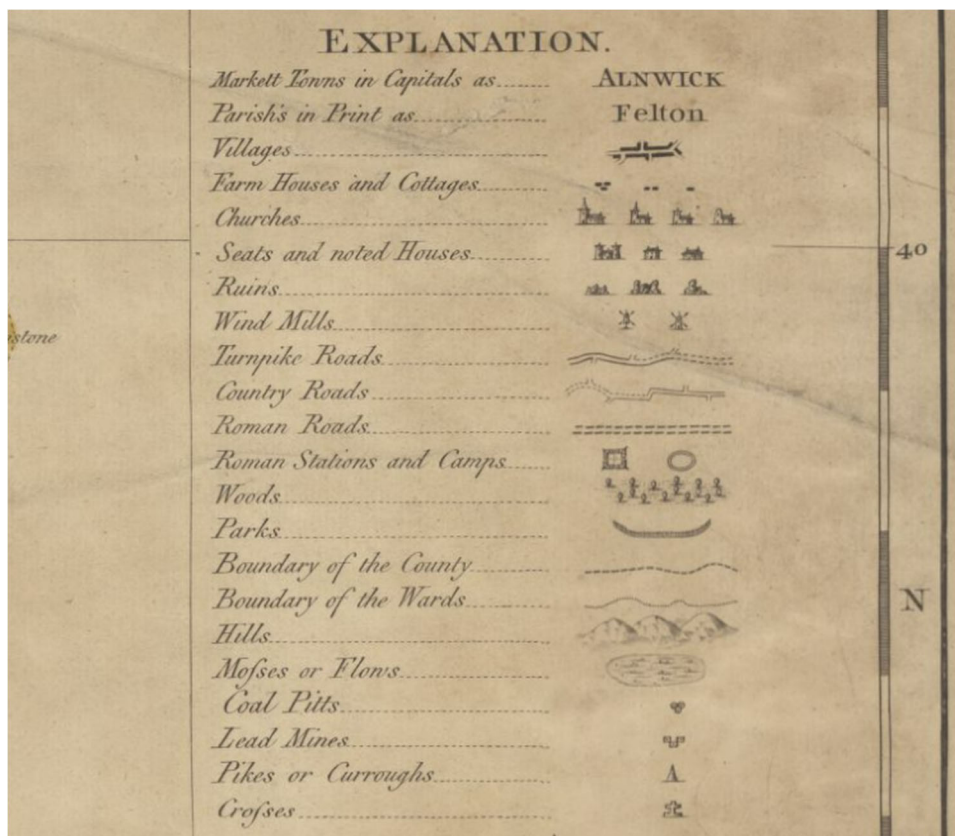 EXPLANATION.
Markett Towns in Capitals as ALNWICK
Parish's in Print as Felton
Villages
Farm Houses and Cottages
Churches
Seats and noted Houses
40
Ruins
Wind Mills
istone
Turnpike Roads
Country Roads
Roman Roads
Roman Stations and Camps
Woods
Parks
Boundary of the County
Boundary of the Wards
N
Hills
Moſses or Flows
Coal Pitts
Lead Mines
Pikes or Curroughs
Croſses